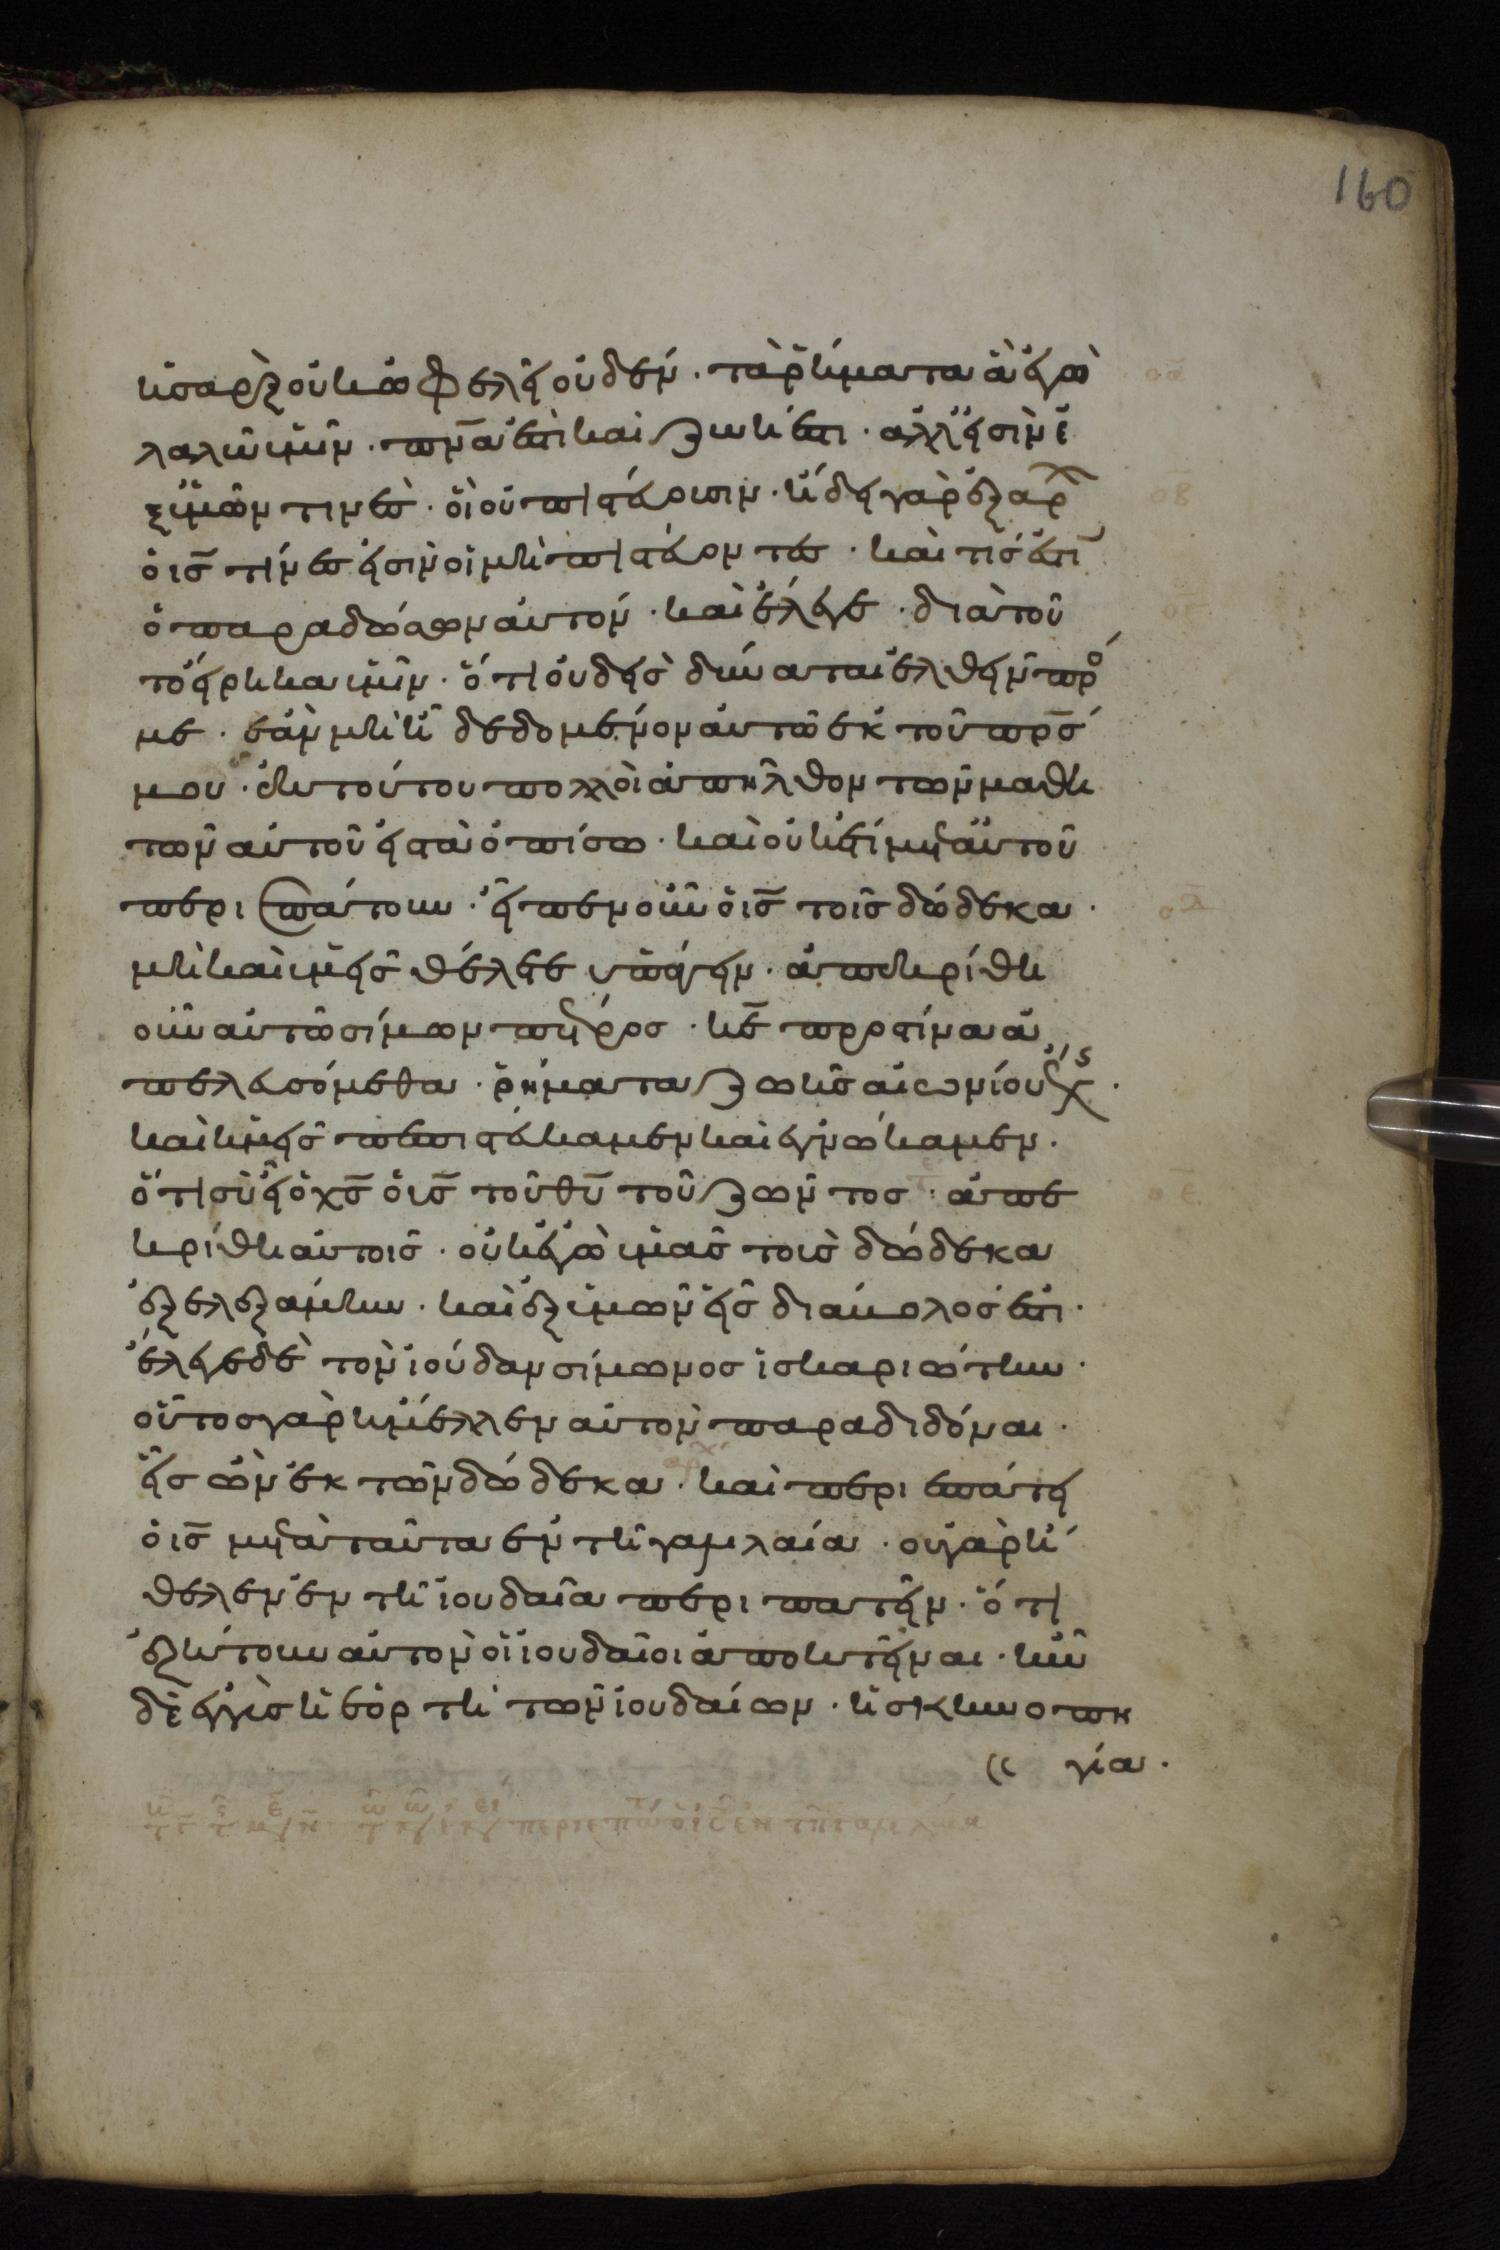 160
ἡ σὰρξ οὐκ ὠφελεῖ οὐδέν · τὰ ῥήματα ἃ ἐγὼ
λαλῶ ὑμῖν · πν̅α ἐστὶ καὶ ζωή ἐστι · ἀλλ' εἰσὶν ἐ
ξ ὑμῶν τινὲς · οἳ οὐ πιστεύουσιν · ἤδει γὰρ ἐξ αρχ
ὁ ις̅ τίνες εἰσὶν οἱ μὴ πιστεύοντες · καὶ τίς ἐστι
ὁ παραδώσων αὐτόν · καὶ ἔλεγε · διὰ τοῦ
το εἴρηκα ὑμῖν · ὅτι οὐδεὶς δύναται ἐλθεῖν πρό
με · ἐὰν μὴ ἦ δεδομένον αὐτῶ ἐκ τοῦ πρ̅ς
μου · ἐκ τούτου πολλοὶ ἀπῆλθον τῶν μαθη
τῶν αὐτοῦ εἰς τὰ ὀπίσω · καὶ οὐκέτι μετ' αὐτοῦ
περιεπάτουν · εἶπεν οὖν ὁ ις̅ τοῖς δώδεκα ·
μὴ καὶ ὑμεῖς θέλετε ὑπάγειν · ἀπεκρίθη
οὖν αὐτῶ σίμων πέτρος · κε̅ πρὸς τίνα ἀ
πελευσόμεθα · ῥήματα ζωῆς αἰωνίου ἔχεις ·
καὶ ἡμεῖς πεπιστεύκαμεν καὶ ἐγνώκαμεν ·
ὅτι σὺ εἶ ὁ χς̅ ὁ υς̅ τοῦ θυ̅ τοῦ ζῶντος · ἀπε
κρίθη αὐτοῖς · οὐκ ἐγὼ ὑμᾶς τοὺς δώδεκα
ἐξελεξάμην · καὶ ἐξ ὑμῶν εἷς διάβολός ἐστι ·
ἔλεγε δὲ τὸν ἰούδαν σίμωνος ἰσκαριώτην ·
οὗτος γὰρ ἤμελλεν αὐτὸν παραδιδόναι ·
εἷς ὢν ἐκ τῶν δώδεκα · καὶ περιεπάτει
ὁ ις̅ μετὰ ταῦτα ἐν τῆ γαλιλαία · οὐ γὰρ ἤ
θελεν ἐν τῆ ἰουδαία περιπατεῖν · ὅτι
ἐζήτουν αὐτὸν οἱ ἰουδαῖοι ἀποκτεῖναι · ἦν
δὲ ἐγγὺς ἡ ἑορτὴ τῶν ἰουδαίων · ἡ σκηνοπη
γία ·